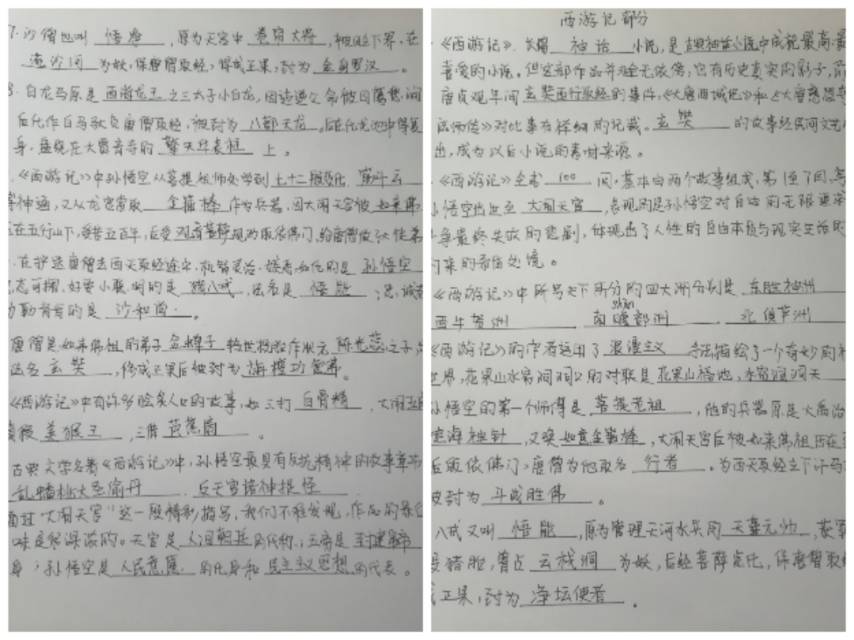 7.沙僧也叫 悟净 ,原为天宫中 卷帘大将 ,被贬下界,在
流沙河 为妖,保唐僧取经,修成正果,封为 金身罗汉 。
8.白龙马原是 西海龙王 之三太子小白龙,因违逆父命被囚鹰愁涧
后化作白马驮负唐僧取经,被封为 八部天龙 。后在化龙池中得复
身,盘绕在大雷音寺的 擎天华表柱 上。
.《西游记》中孙悟空从菩提祖师处学到 七十二般变化、筋斗云
等神通,又从龙宫索取 金箍棒 作为兵器,因大闹天宫被 如来佛
压在五行山下,受苦五百年,后受 观音菩萨 规劝皈依佛门,给唐僧做
.在护送唐僧去西天取经途中,机智灵活、嫉恶如仇的是 孙悟空
憨态可掬,好耍小聪明的是 猪八戒 ,法名是 悟能 ;忠诚
勤勤恳恳的是 沙和尚 。
唐僧是如来佛祖的弟子 金蝉子 转世投胎作状元 陈光蕊 之子
法名 玄奘 ,修成正果后被封为 旃檀功德佛。
《西游记》中有许多脍炙人口的故事,如三打 白骨精 ,大闹
美猴王 ,三借 芭蕉扇 。
古典文学名著《西游记》中,孙悟空最具有反抗精神的故事章节
乱蟠桃大圣偷丹 、 反天宫诸神捉怪 .
通过"大闹天宫"这一段精彩描写,我们不难发现,作品的
味是很深浓的。天宫是 人间朝廷 的代称,玉帝是 封建皇帝
身,孙悟空是 人民意愿 的化身和 民主主义思想 的代表。
西游记部分
.《西游记》,长篇 神话 小说,是古典神话小说中成就最高、最
喜爱的小说。但这部作品并非全无依傍,它有历史真实的影子,
唐贞观年间 玄奘西行取经 的事件,《大唐西域记》和《大唐慈恩寺
法师传》对此事有详细的记载。 玄奘 的故事经民间文艺
出,成为以后小说的素材来源。
.《西游记》全书 100 回,基本由两个故事组成,第1至7回,写
孙悟空出世至 大闹天宫 ,表现的是孙悟空对自由的无限追求
争最终失败的悲剧,体现出了人性的自由本质与现实生活
约束的矛盾处境。
《西游记》中所写天下所分的四大洲分别是 东胜神洲
西牛贺洲 南赡部洲 北俱芦洲
shàn
《西游记》的作者运用了 浪漫主义 手法描绘了一个奇妙的神
世界,花果山水帘洞洞口的对联是 花果山福地,水帘洞洞天
孙悟空的第一个师傅是 菩提老祖 ,他的兵器原是大禹治
定海神针 ,又唤 如意金箍棒 ,大闹天宫后被如来佛祖压在
后皈依佛门,唐僧为他取名 行者 。为西天取经立下汗马
被封为 斗战胜佛 。
八戒又叫 悟能 ,原为管理天河水兵的 天蓬元帅 ,获罪
猪胎,曾占 云栈洞 为妖,后经菩萨点化,保唐僧取
正果,封为 净坛使者 。